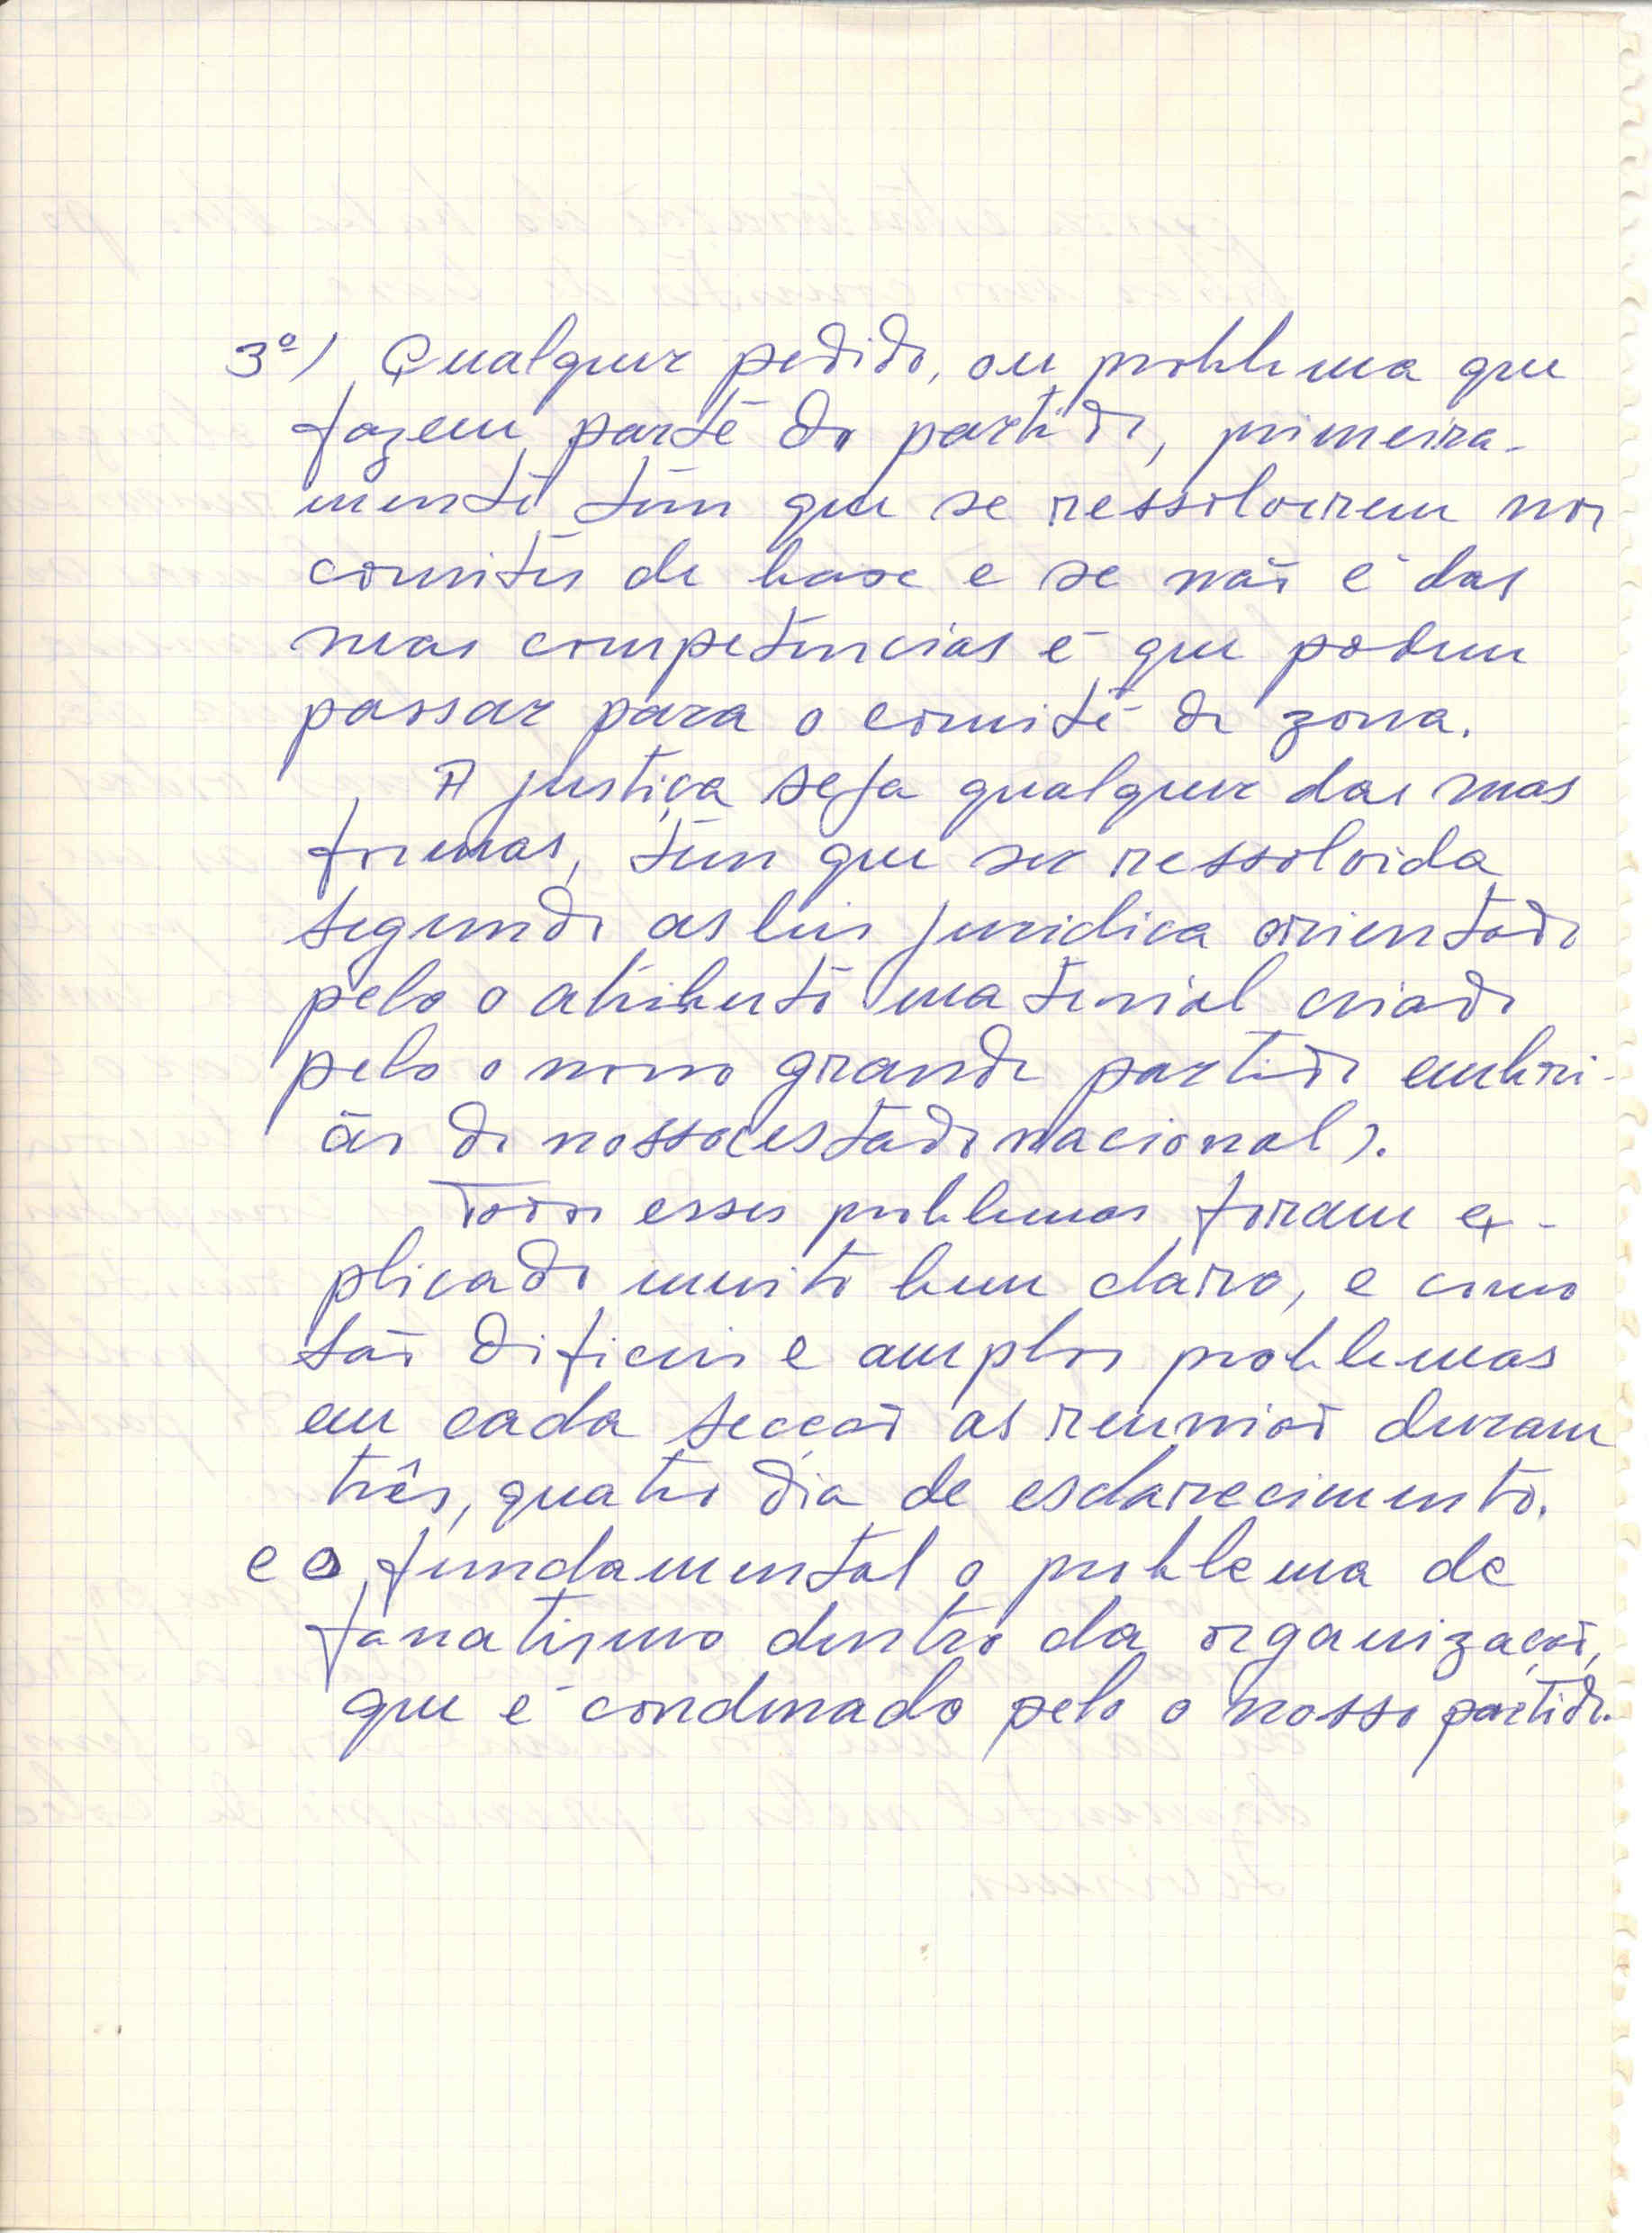 3º) Qualquer pedido, ou problema que
fazem parte do partido, primeira-
mente têm que se ressolverem nos
comités de base e se não é das
suas competências é que podem
passar para o comité de zona.
A justiça seja qualquer das suas
formas, têm que ser ressolvida
segundo as leis juridica orientado
pelo o atributo material criado
pelo o nosso grande partido embri-
ão do nosso (estado nacional).
Todos esses problemas foram ex-
plicado muito bem claro, e como
são dificeis e amplos problemas
em cada secção as reunioẽs duram
três, quatro dia de esclarecimento.
e o fundamental o problema de
fanatismo dentro da organização,
que é condenado pelo o nosso partido.